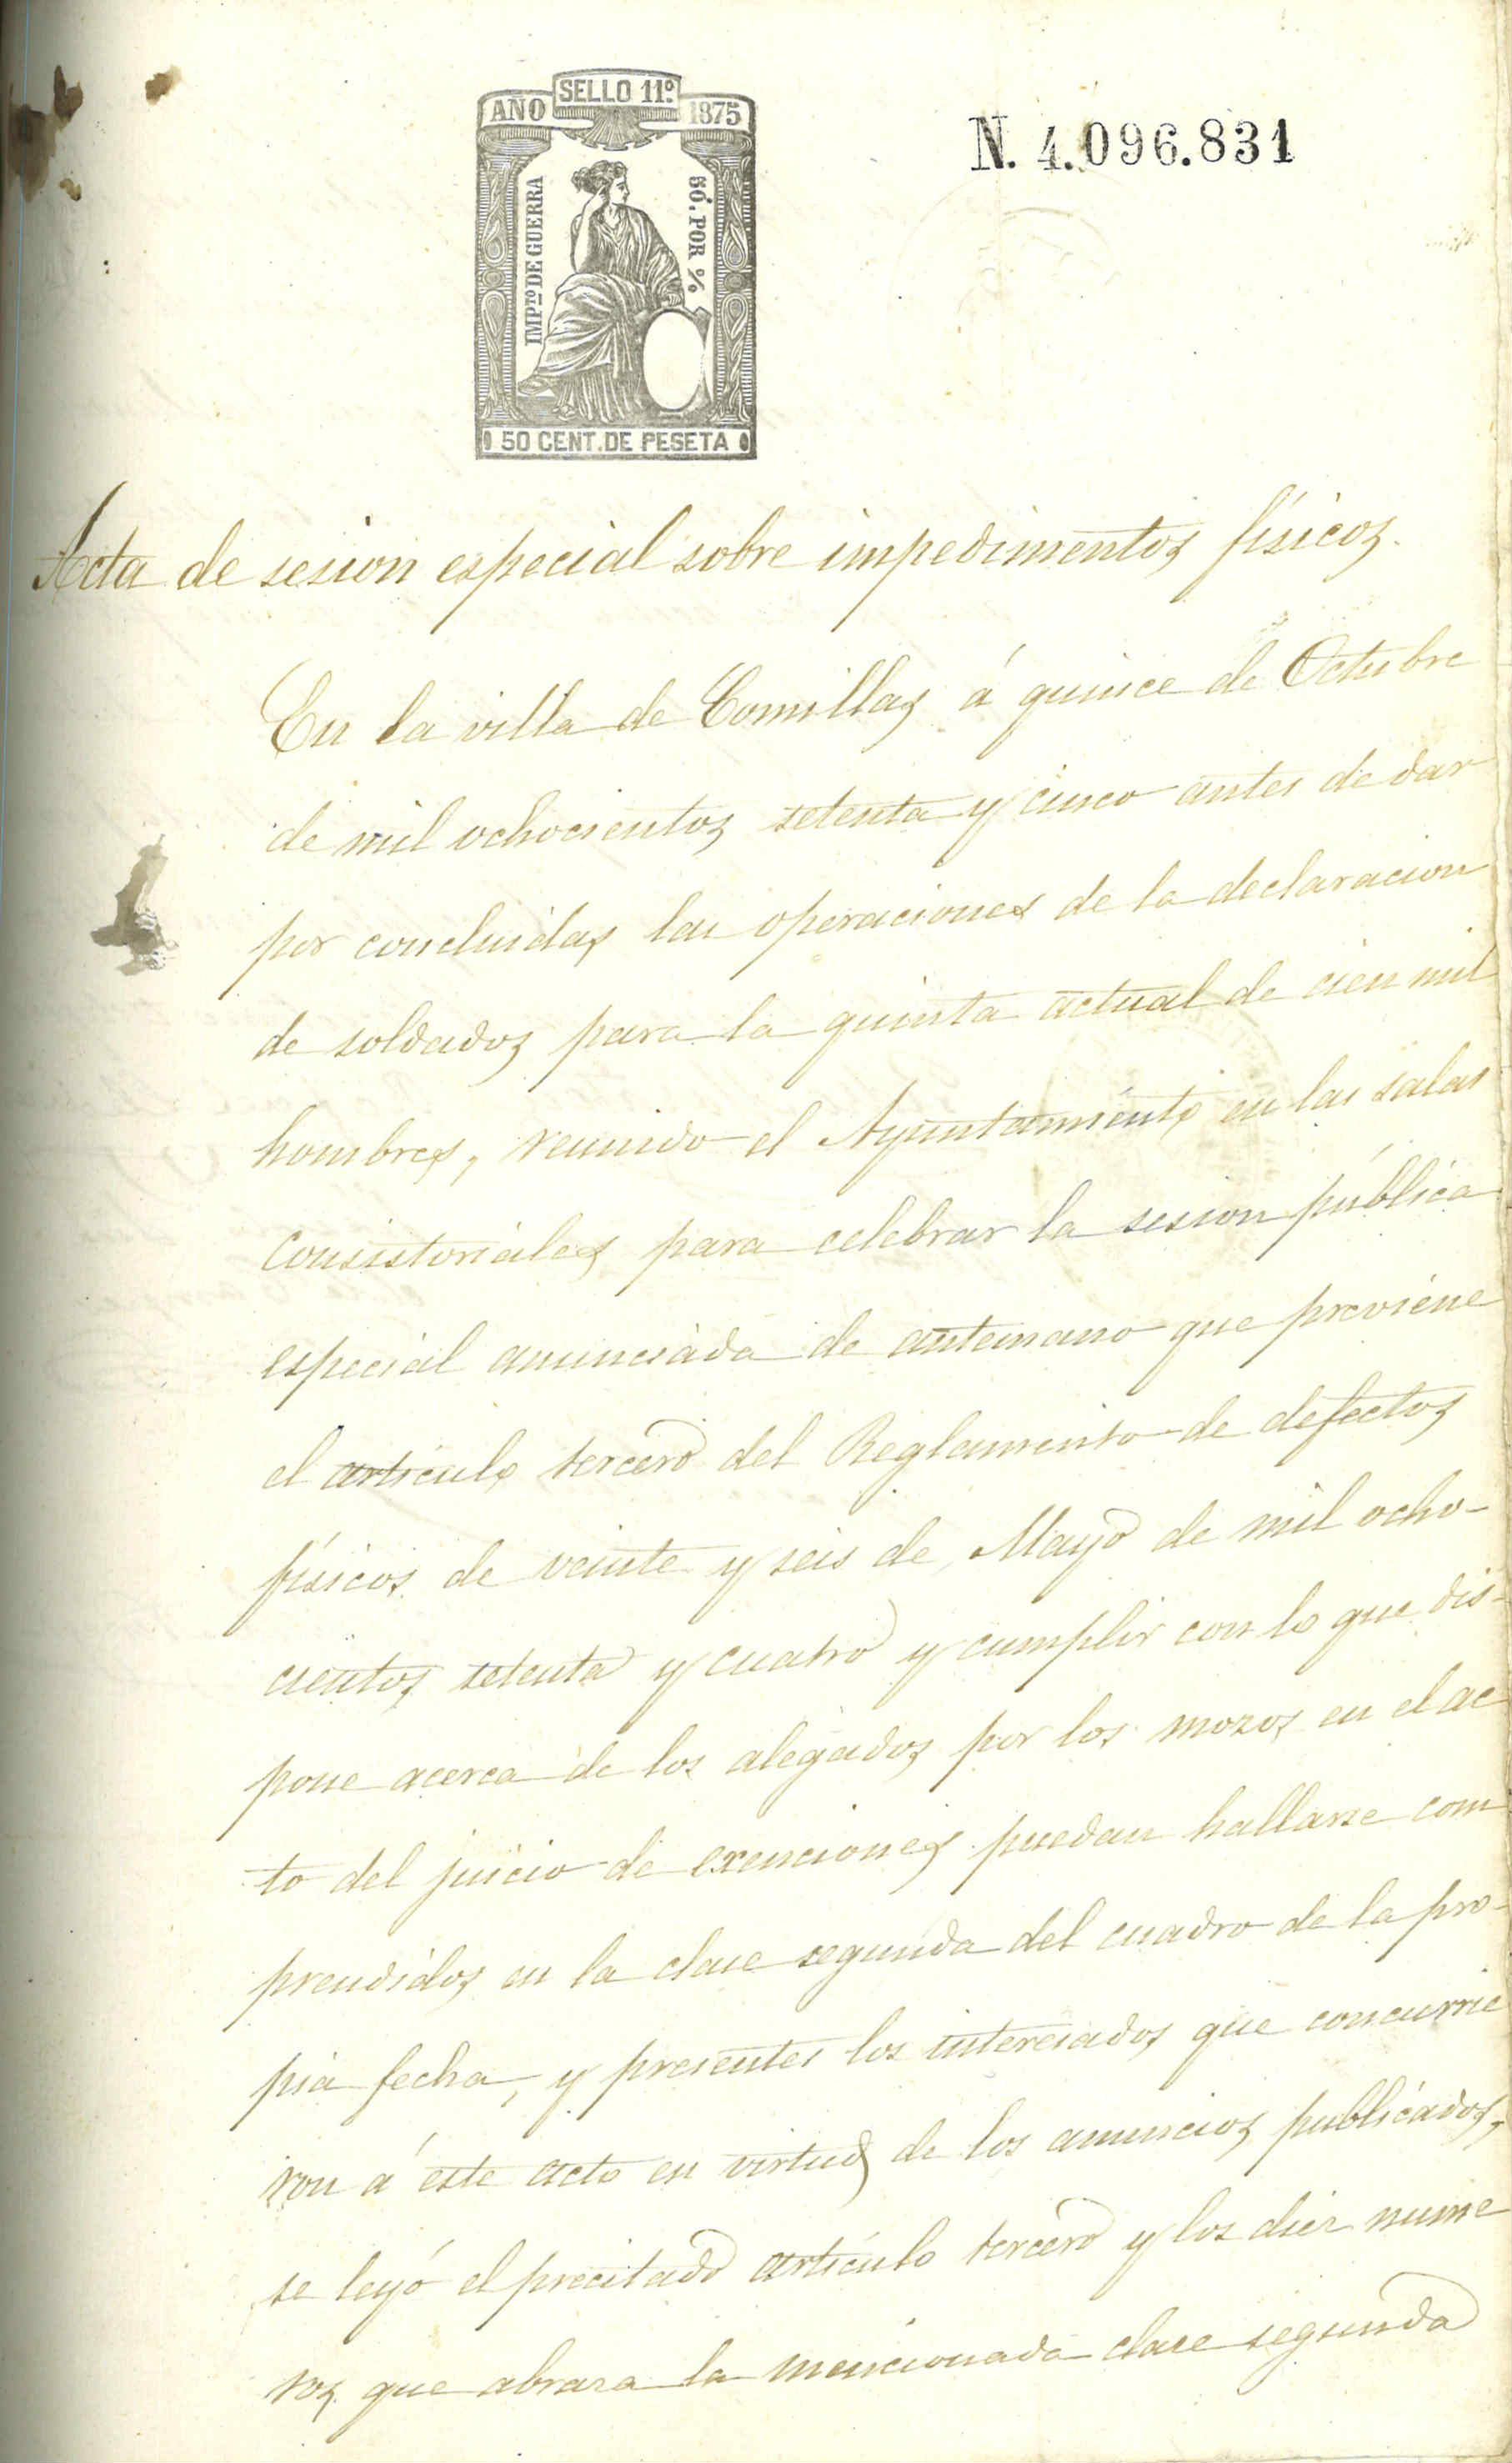 SELLO 11º
AÑO 1875
N. 4.096.831
IMPTO DE GUERRA
50 CENT. DE PESETA
Acta de sesion especial sobre impedimentos físicos.
En la villa de Comillas á quince de Octubre
de mil ochocientos setenta y cinco antes de dar
por concluidas las operaciones de la declaracion
de soldados para la quinta actual de cien mil
hombres, reunido el Ayuntamiento en las salas
consistoriales para celebrar la sesion pública
especial anunciada de antemano que previene
el artículo tercero del Reglamento de defectos
físicos de veinte y seis de Mayo de mil ocho-
cientos setenta y cuatro y cumplir con lo que dis-
pone acerca de los alegados por los mozos en el ac
to del juicio de exenciones puedan hallarse com
prendidos en la clase segunda del cuadro de la pro-
pia fecha, y presentes los interesados que concurrie
ron á este acto en virtud de los anuncios publicados,
se leyó el precitado artículo tercero y los diez nume
ros que abraza la mencionada clase segunda